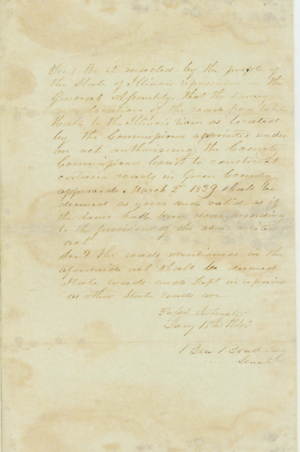 Sec 1 Be it enacted by the people of
the State of Illinois represented in the
General Assembly that the survey
and location of the road from White
to the Illinois River as located
by the Commissioners appointed under
an act authorising the County
Commissioners Court to construct
certain roads in Green County
approved March 2d 1839 shall be
deemed as good and valid as if
the same had been done according
to the provisions of the
act
Sec 2 The roads mentioned in the
aforesaid act shall be deemed
State roads and kept in repair
as other State roads are
Passed
Jany 1840
Ben Bond